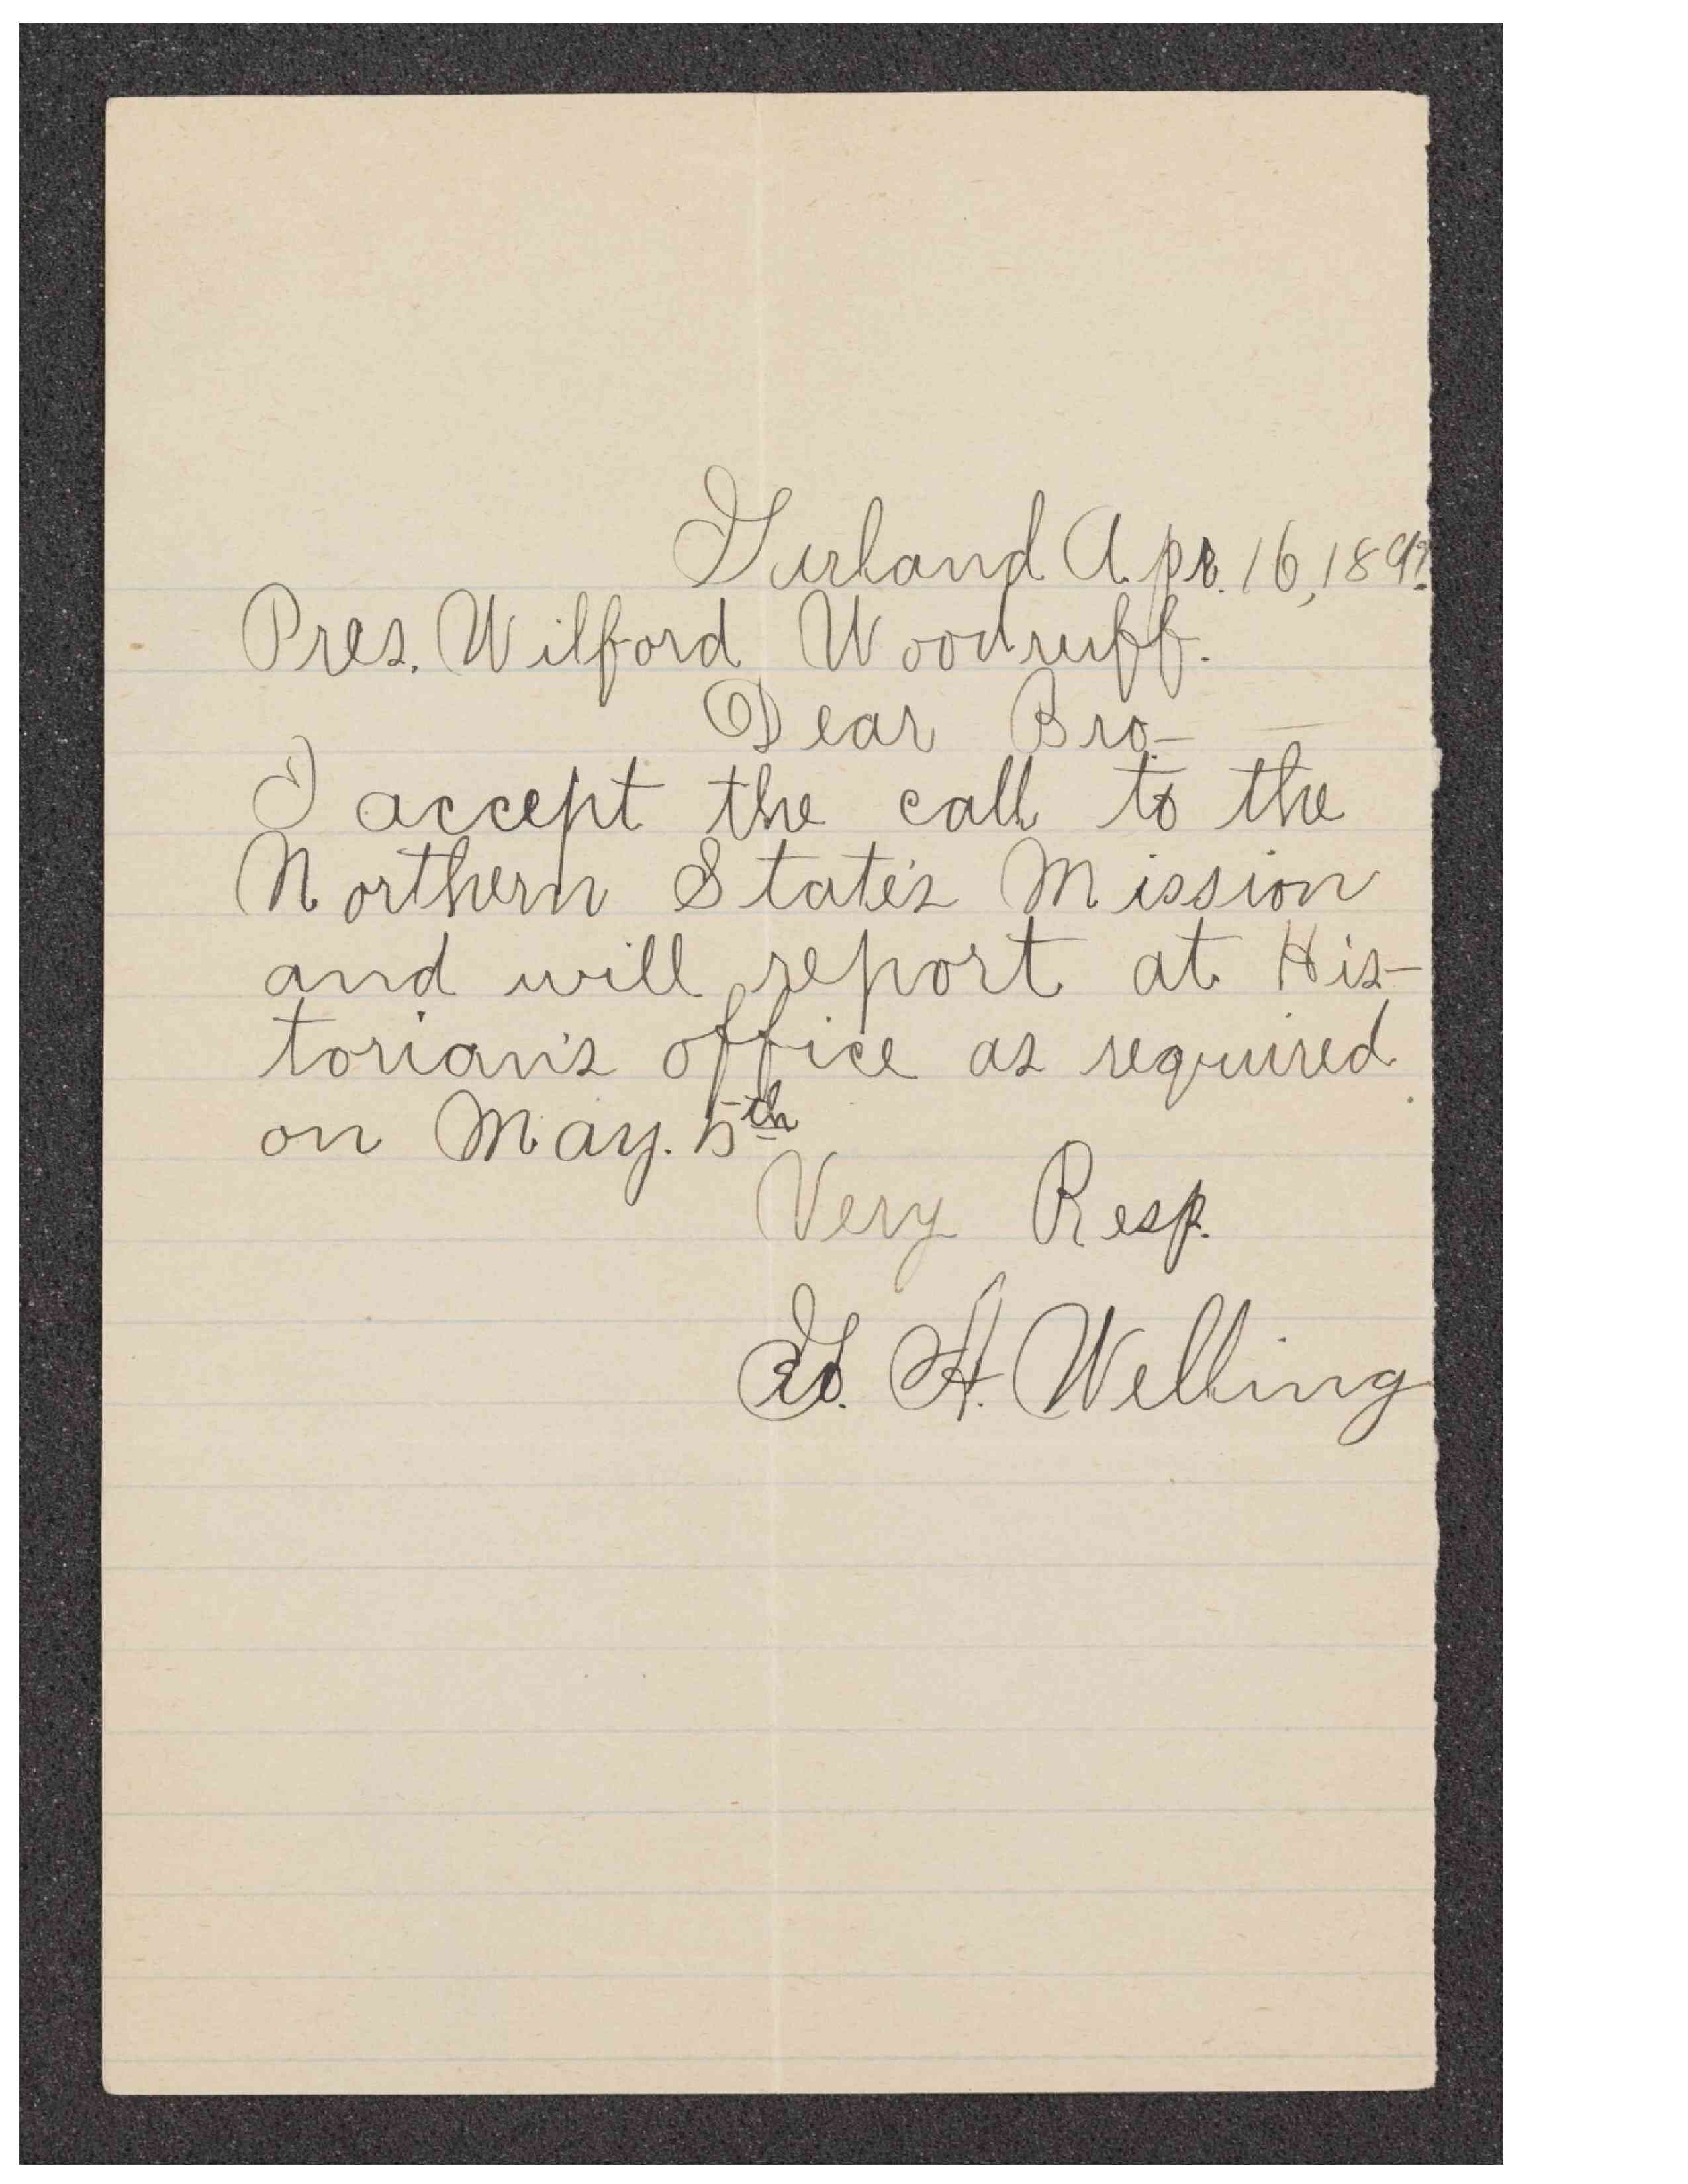 Garland Apr. 16, 1897.
Pres. Wilford Woodruff.
Dear Bro.—
I accept the call to the
Northern State's Mission
and will report at His-
torian's office as required
on May. 5th
Very Resp.
H. Welling